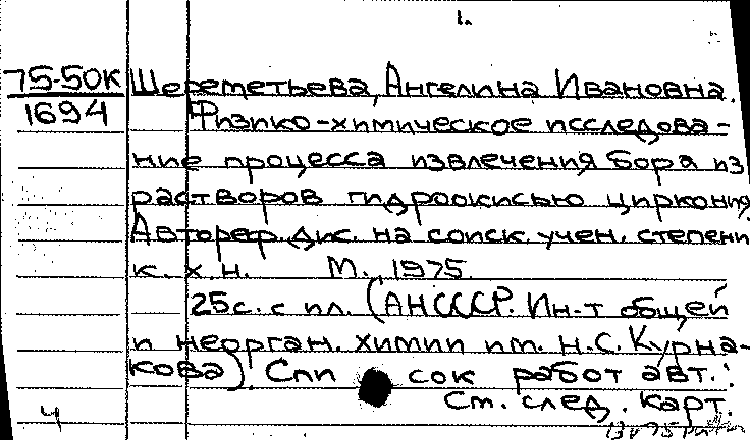 1.
75-50К
1694
Шереметьева, Ангелина Ивановна.
Физико-химическое исследова-
ние процесса извлечения бора из
растворов гидроокисью циркония.
Автореф. дис. на соиск. учен. степени
к. х. н. М., 1975.
25с. с ил. (АН СССР. Ин-т общей
и неорган. химии им. Н.С. Курна-
кова). Спи сок работ авт.:
См. след. карт.
4